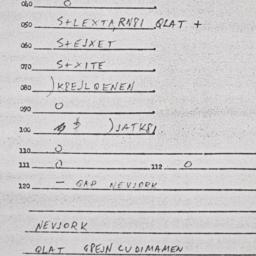 040 O
050 S+LEXTA,RNSI QLAT +
060 S+EJXET
070 S+XITE
080 )KPEJLQENEN
090 O
100 )JATKSI
110 O
111 O 112 O
120 - GAP NEVJORK
NEVJORK
QLAT GPEJN CUDIMAMEN